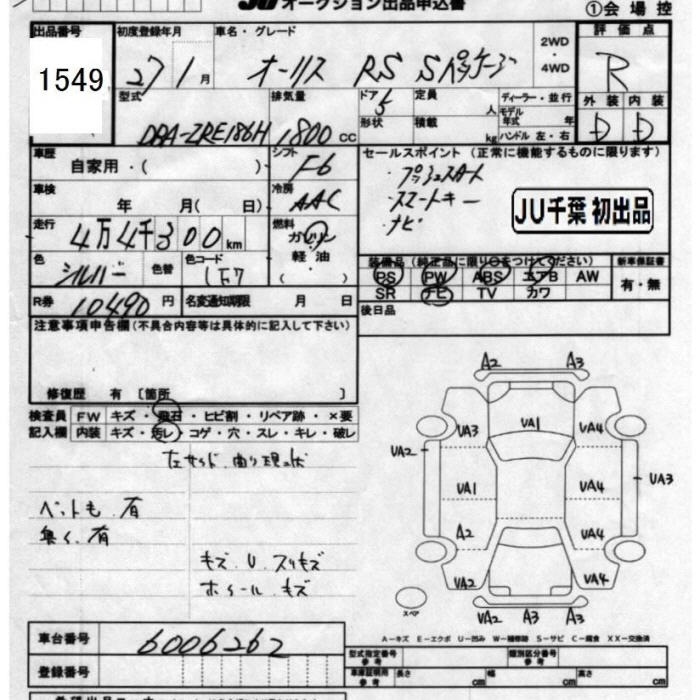 JU オークション出品申込書
①会場控
出品番号 初度登録年月 車名・グレード 2WD ・ 4WD 評価点
1549 27 1月 オーリス RS Sパッケージ R
型式 排気量 ドア 5 定員 人 ディーラー・並行 外装 内装
DBA-ZRE186H 1800 cc 形状 積載 kg モデル年式 年 ハンドル 左・右 D D
車歴 自家用・( )・ シフト F6 セールスポイント (正常に機能するものに限ります)
車検 年 月( 日) 冷房 AAC ・プッシュスタート
・スマートキー
・ナビ
JU千葉 初出品
走行 4万4千300km 燃料 ガソリン・軽油
色 シルバー 色替 色コード 1F7 装備品(純正品に限り○をつけてください) 新車保証書
PS PW ABS エアB AW 有・無
SR ナビ TV カワ
R券 10490円 名変通知期限 月 日 後日品
注意事項申告欄(不具合内容等は具体的に記入して下さい)
修復歴 有 〔箇所 〕
検査員 FW キズ・飛石・ヒビ割・リペア跡・×要
記入欄 内装 キズ・汚レ・コゲ・穴・スレ・キレ・破レ
左サイド 曲り 現状
ペットも 有
臭く 有
キズ U スリキズ
ホイール キズ
A2 A3
UA3 UA1 UA4
UA2 UA3
UA1 UA4
A2 UA4
UA2 UA4
スペア
UA2 A3 A3
A-キズ E-エクボ U-凹み W-補修跡 S-サビ C-腐食 XX-交換済
車台番号 6006262
型式指定番号 参考 類別区分番号 参考
登録番号 車庫証明用 参考 長さ cm 幅 cm 高さ cm